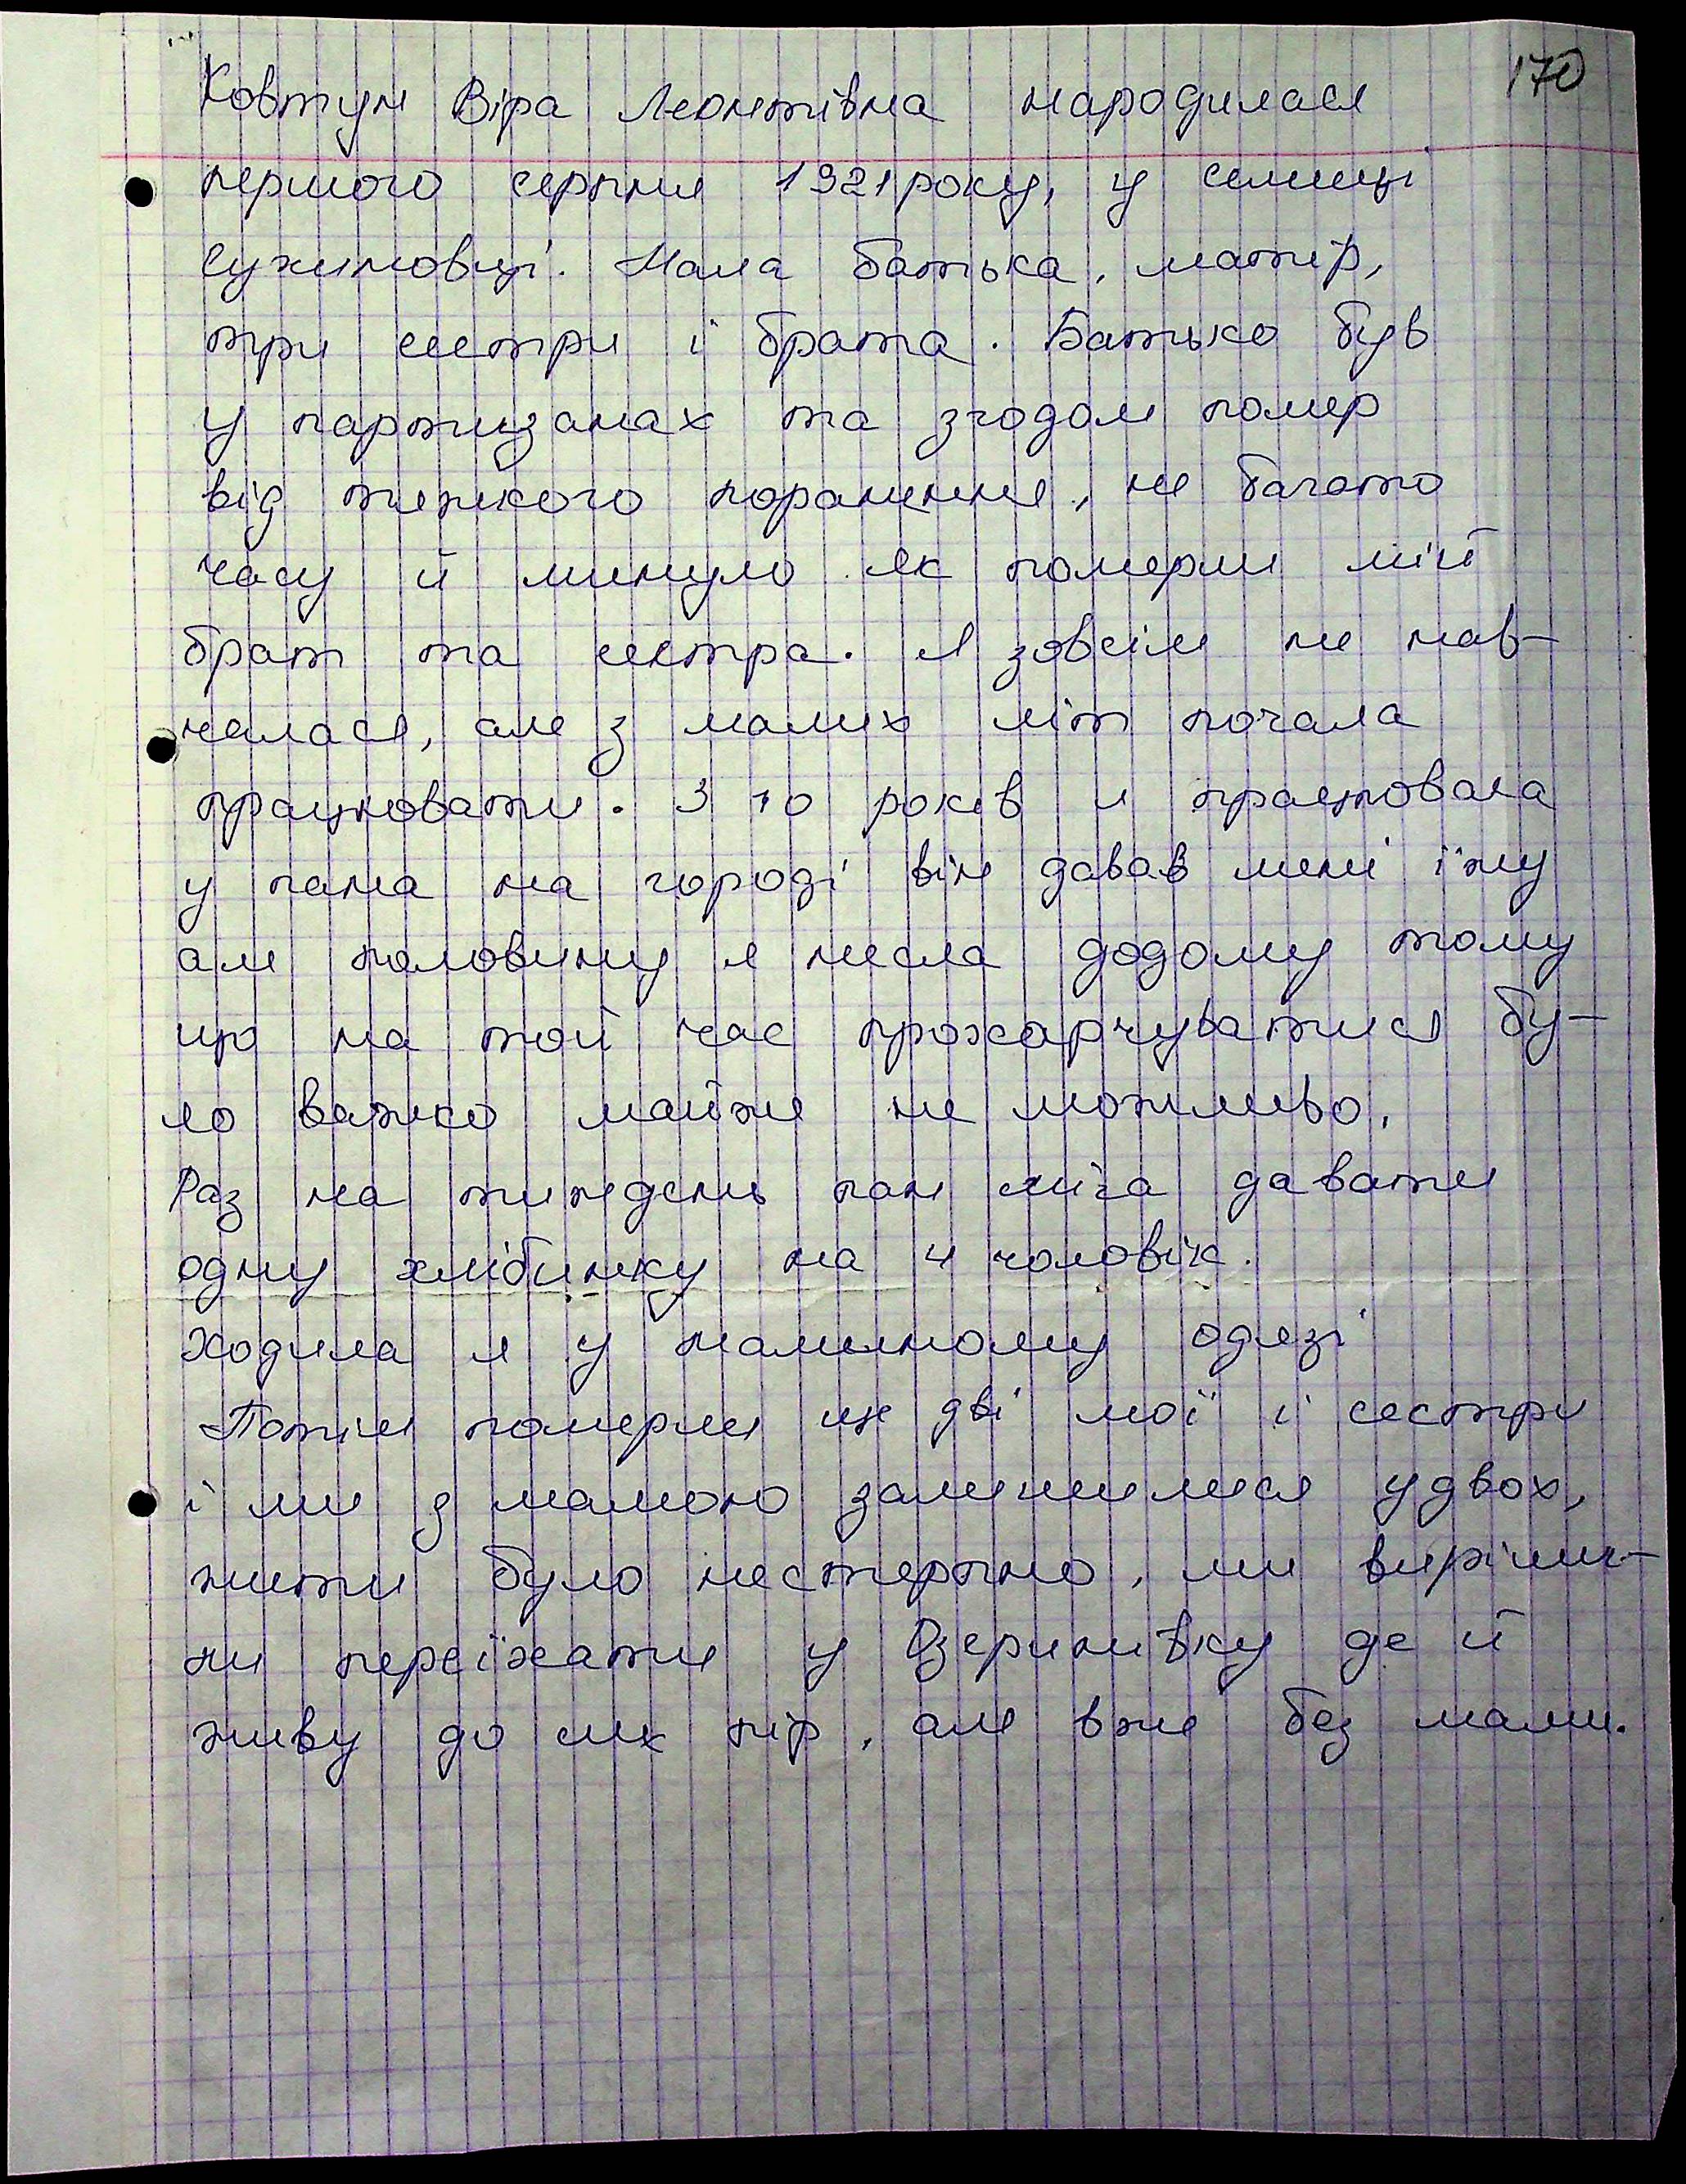 170
Ковтун Віра Леонтівна народилася
першого серпня 1921 року, у селищі
Сухиновці. Мала батька, матір,
три сестри і брата. Батько був
у партизанах та згодом помер
від тяжкого поранення, не багато
часу й минуло як померли мій
брат та сестра. Я зовсім не нав-
чалася, але з малих літ почала
працювати. З 10 років я працювала
у пана на городі він давав мені їжу
але половину я несла додому тому
що на той час прохарчуватися бу-
ло важко майже не можливо.
Раз на тиждень пан міга давати
одну хлібинку на 4 чоловік.
Ходила я у полотняному одязі
Потім померли ще дві мої і сестри
і ми з мамою залишилися удвох,
жити було нестерпно, ми виріши-
ли переїхати у Озеринівку де й
живу до сих пір, але вже без мами.